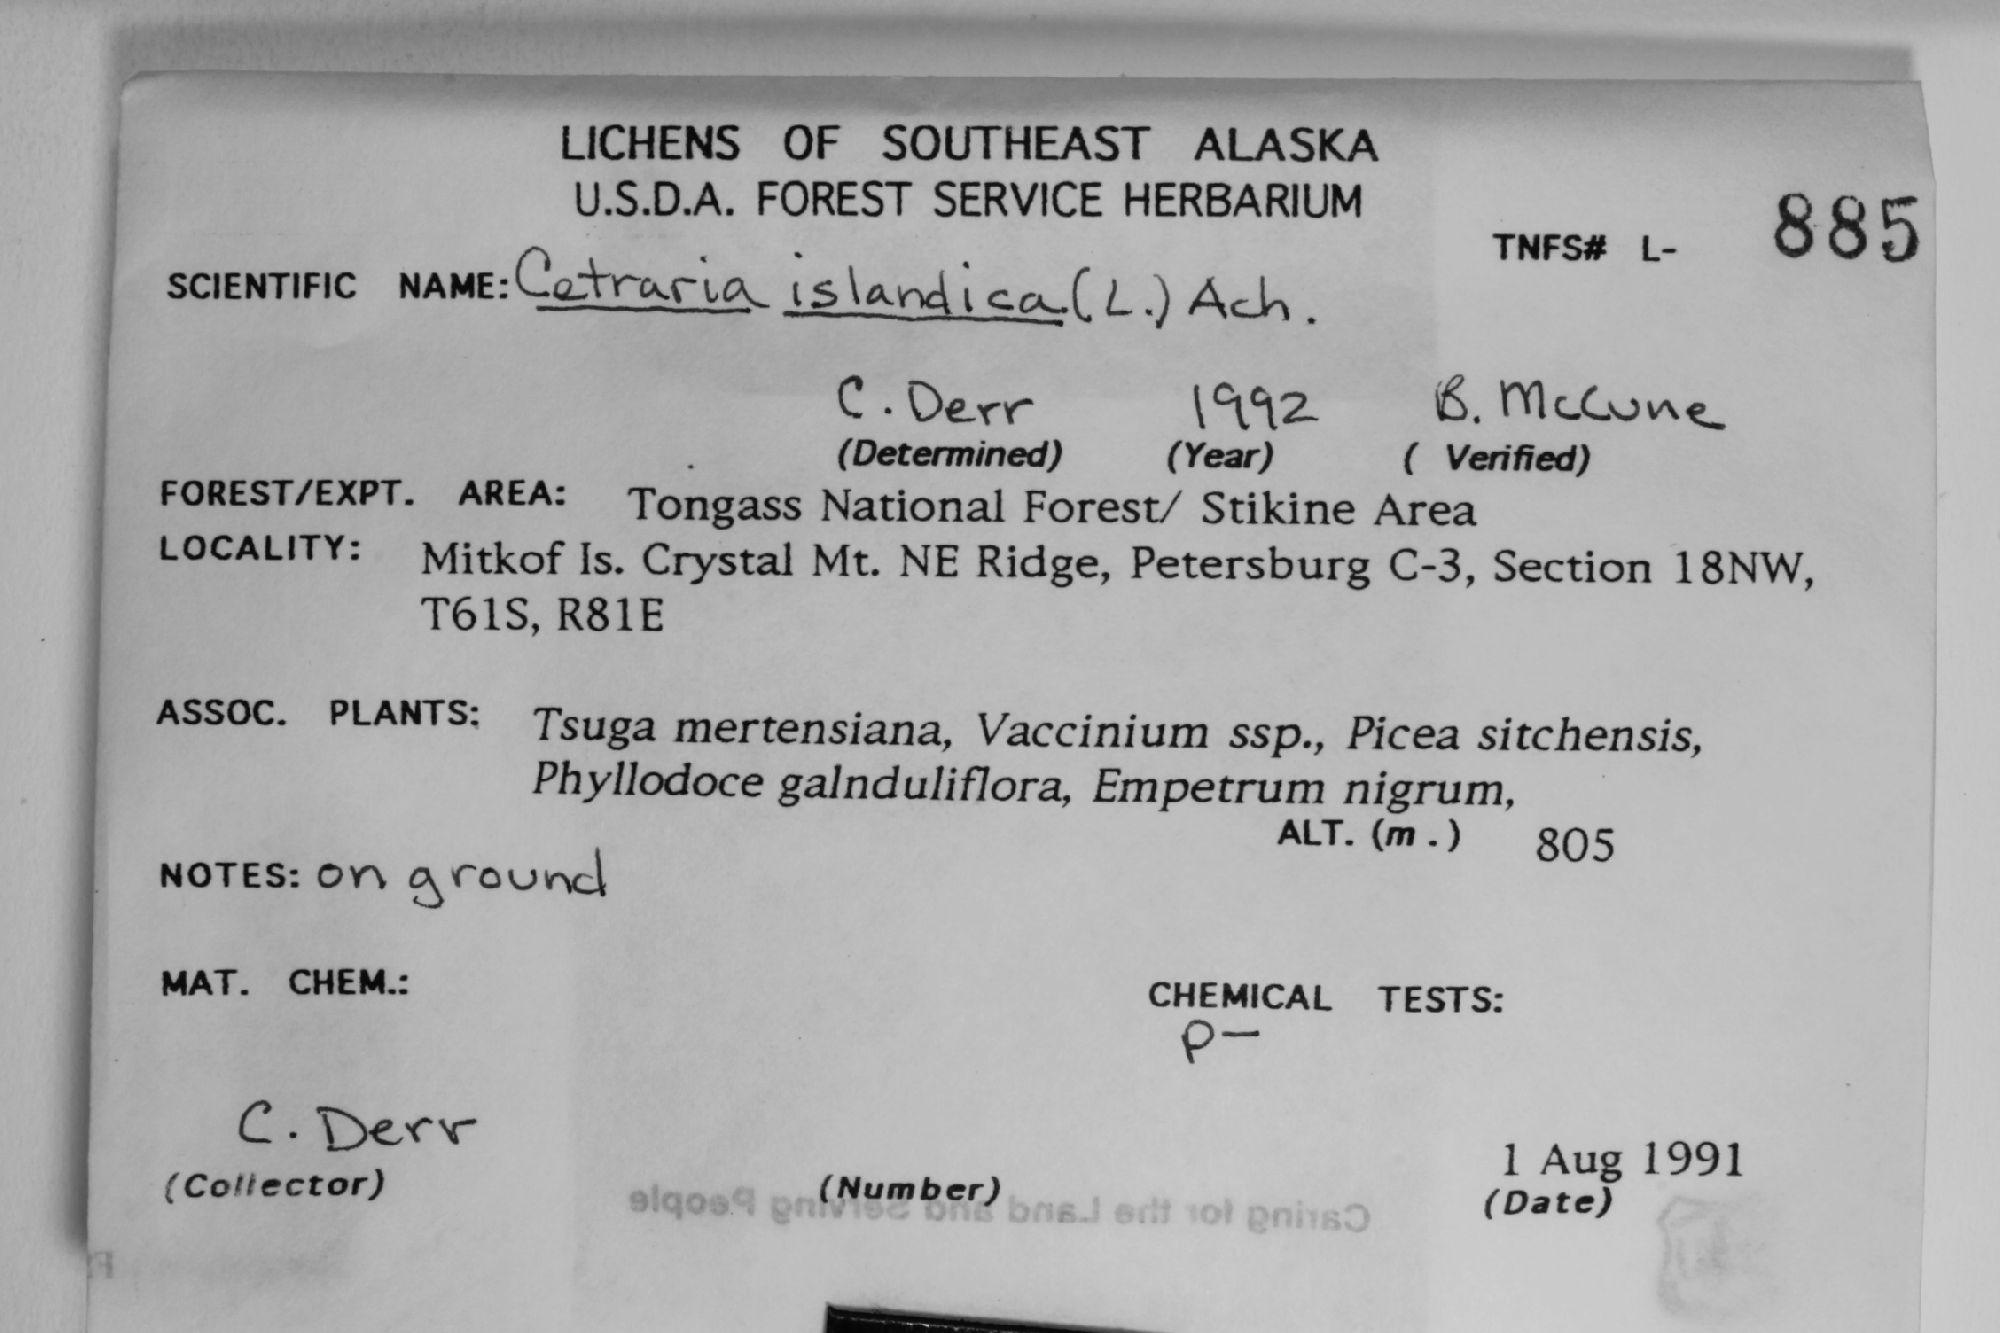 LICHENS OF SOUTHEAST ALASKA
U.S.D.A. FOREST SERVICE HERBARIUM
TNFS# L- 885
SCIENTIFIC NAME: Cetraria islandica (L.) Ach.
C. Derr 1992 B. McCune
(Determined) (Year) ( Verified)
FOREST/EXPT. AREA: Tongass National Forest/ Stikine Area
LOCALITY: Mitkof Is. Crystal Mt. NE Ridge, Petersburg C-3, Section 18NW,
T61S, R81E
ASSOC. PLANTS: Tsuga mertensiana, Vaccinium ssp., Picea sitchensis,
Phyllodoce galnduliflora, Empetrum nigrum,
ALT. (m.) 805
NOTES: on ground
MAT. CHEM.:
CHEMICAL TESTS:
P-
C. Derr
1 Aug 1991
(Collector) (Number) (Date)
Caring for the Land and Serving People